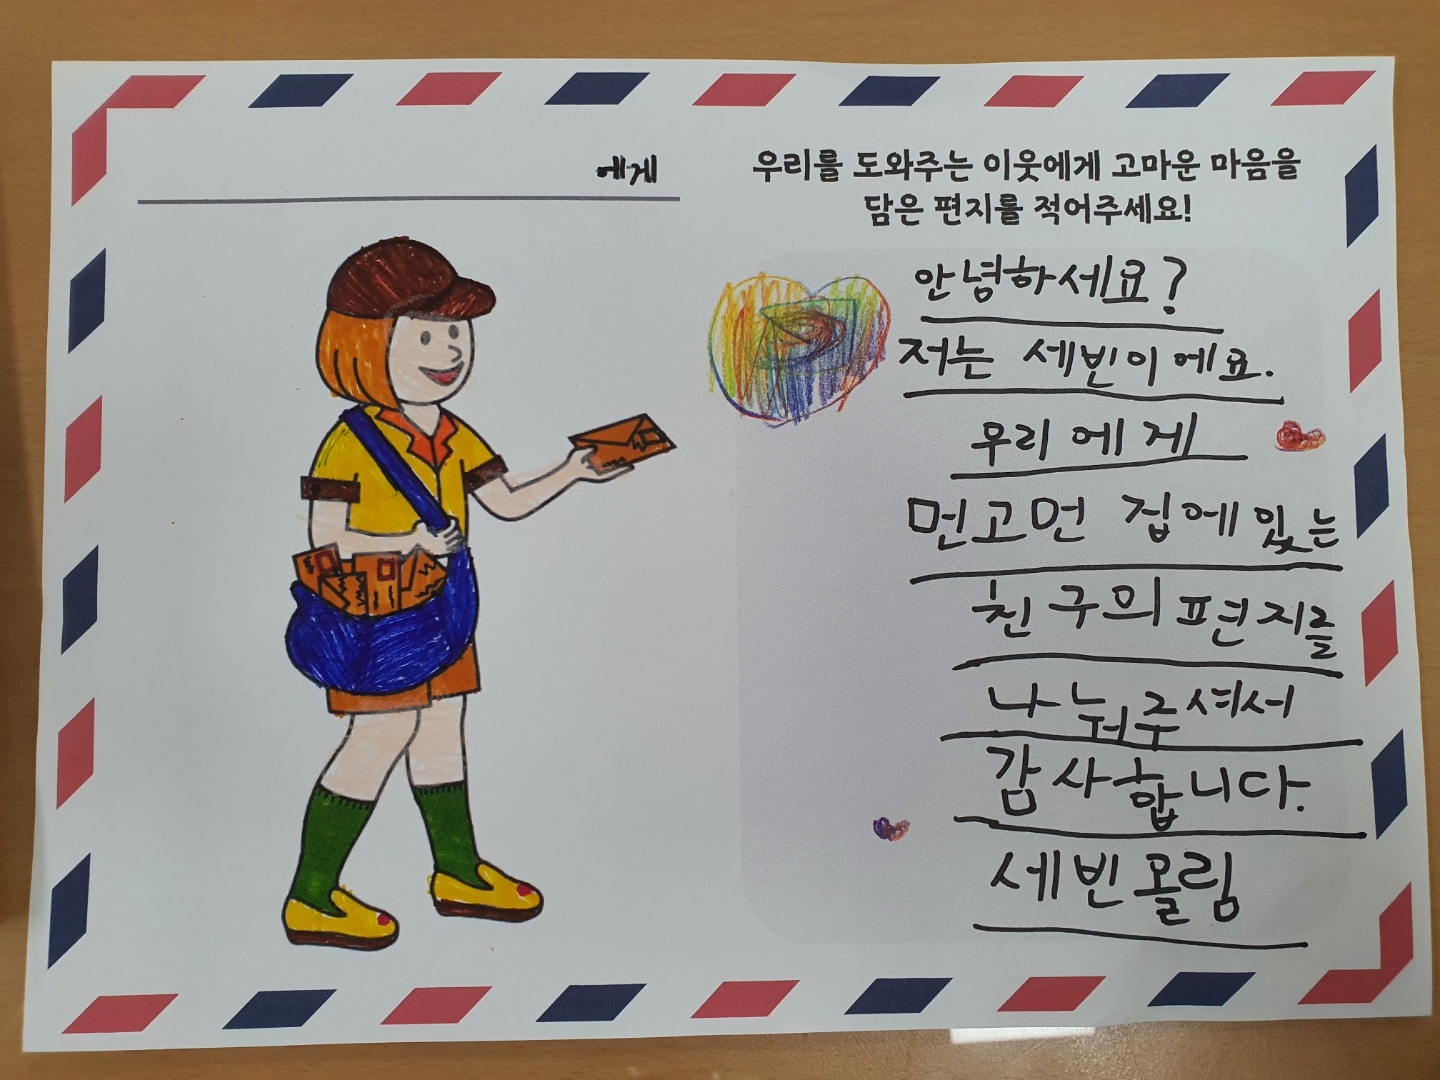 에게
우리를 도와주는 이웃에게 고마운 마음을
담은 편지를 적어주세요!
안녕하세요?
저는 세빈이에요.
우리에게
먼고먼 집에 있는
친구의 편지를
나눠주셔서
감사합니다.
세빈 올림